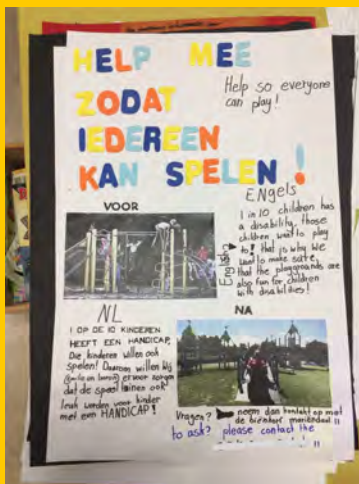 HELP MEE
ZODAT
IEDEREEN
KAN SPELEN!
Help so everyone
can play!
VOOR
ENgels
English
1 in 10 children has
a disability, those
children want to play
to! that is why we
want to make sure,
that the playgrounds are
also fun for children
with disabilities!
NL
1 OP DE 10 KINDEREN
HEEFT EEN HANDICAP,
Die kinderen willen ook
spelen! Daarom willen wij
ervoor zorgen
dat de speeltuinen ook
leuk worden voor kinder
met een HANDICAP!
NA
Vragen? neem dan kontakt op met
de bienden! mariëndaal !!
to ask? please contact the